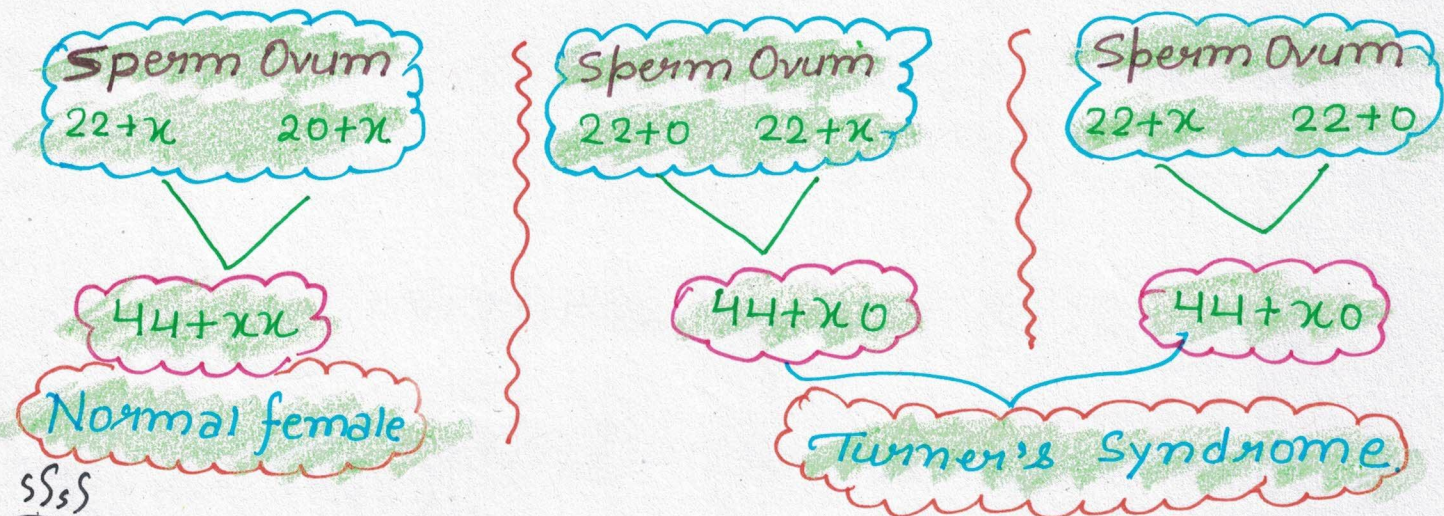 Sperm Ovum
22+x 20+x
44+xx
Normal female
Sperm Ovum
22+0 22+x
44+x0
Sperm Ovum
22+x 22+0
44+x0
Turner's Syndrome.